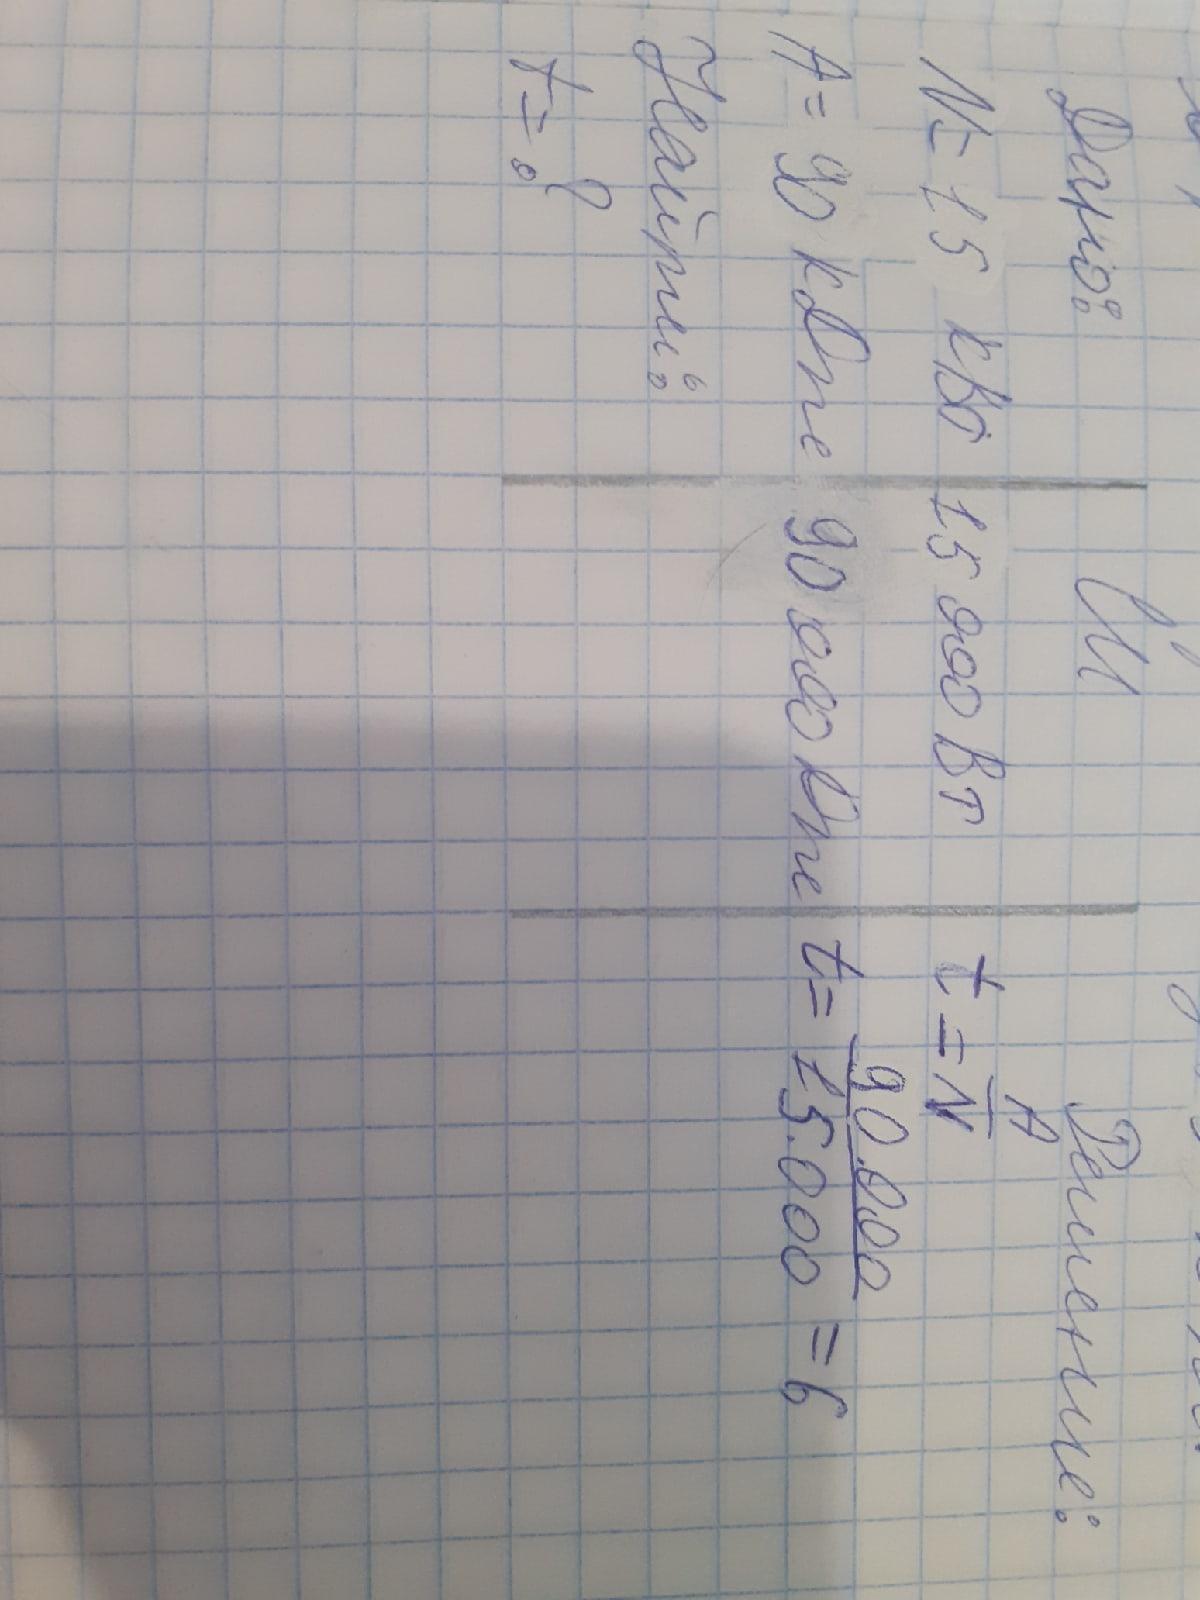 Дано: СИ Решение:
N= 15 кВт 15 000 Вт t = A/N
A= 90 кДж 90 000 кДж t= 90.000/15.000 = 6
Найти:
t=?